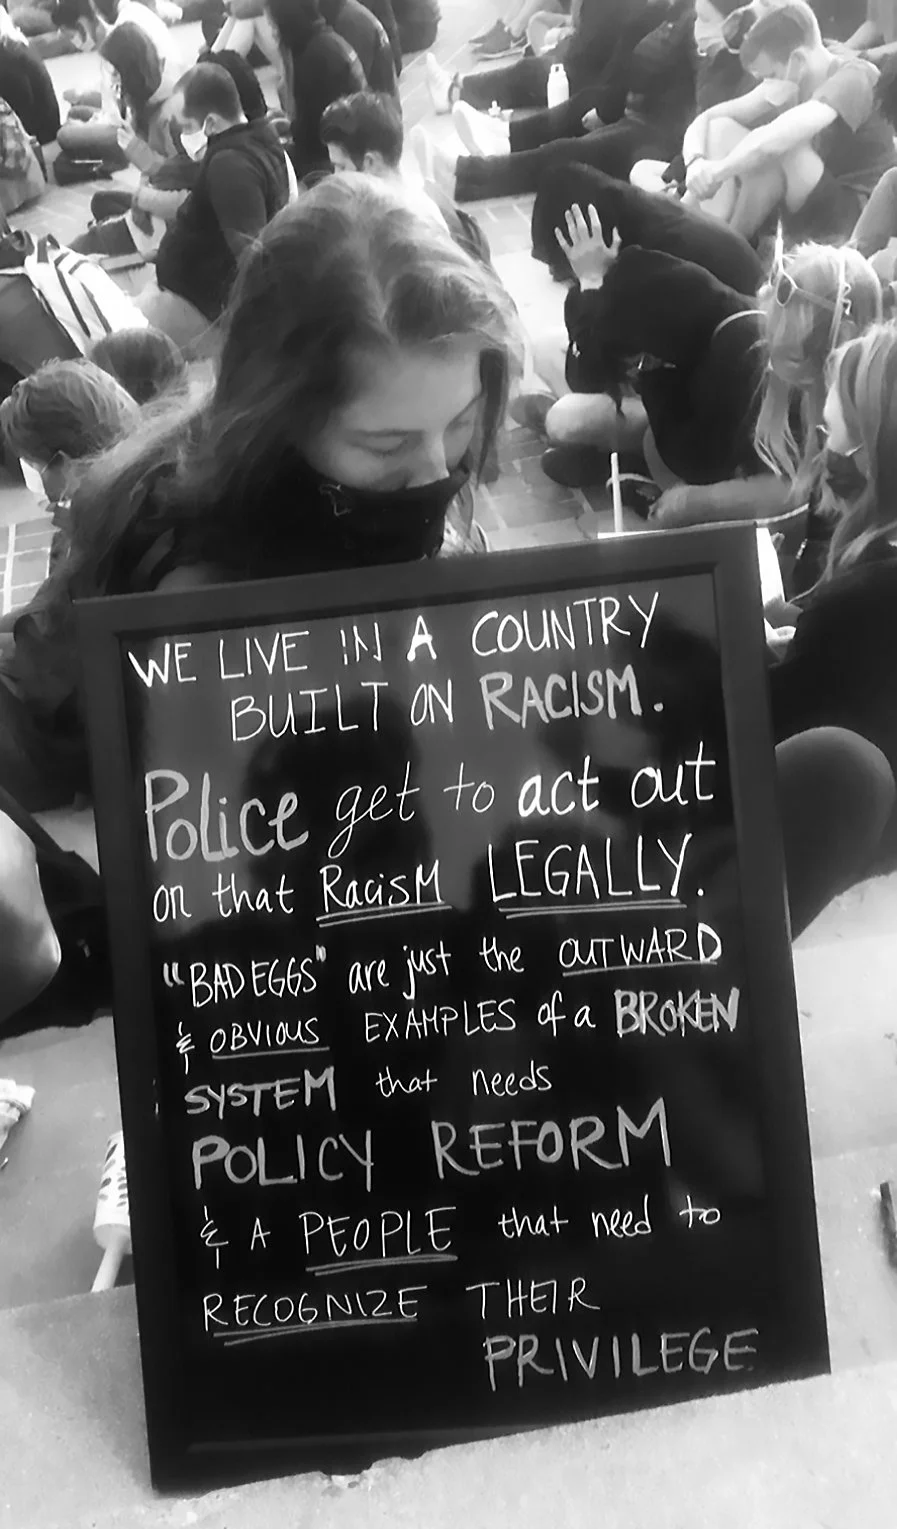 WE LIVE IN A COUNTRY
BUILT ON RACISM.
Police get to act out
on that RacisM LEGALLY.
"BAD EGGS" are just the OUTWARD
& OBVIOUS EXAMPLES of a BROKEN
SYSTEM that needs
POLICY REFORM
& A PEOPLE that need to
RECOGNIZE THEIR
PRIVILEGE